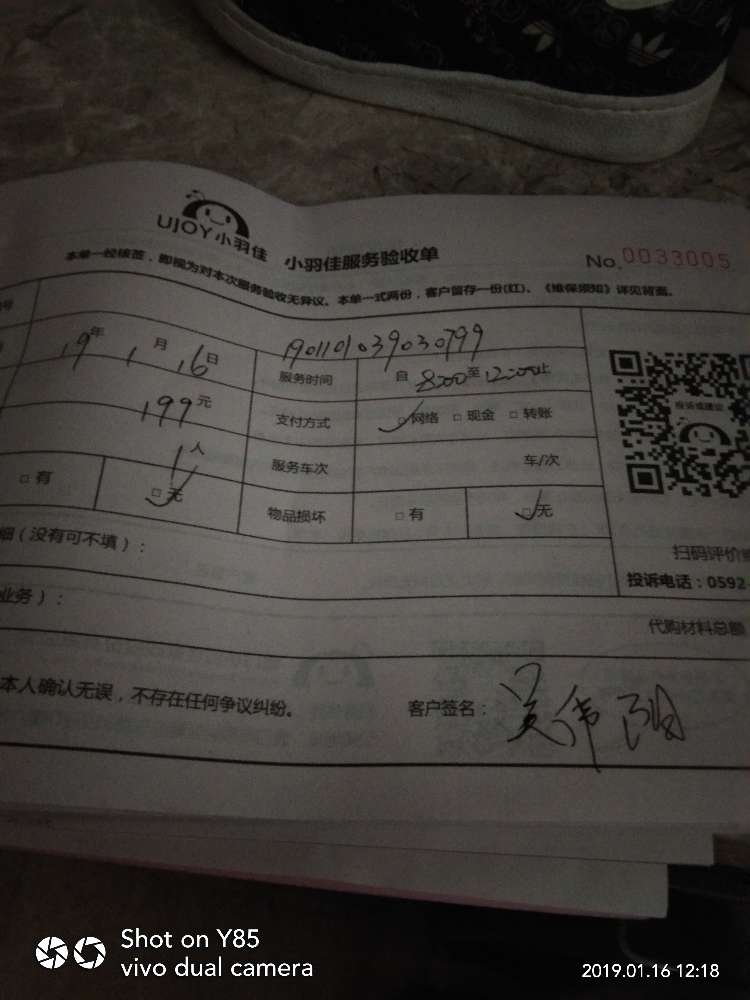 UJOY小羽佳 小羽佳服务验收单
No.0033005
本单一经核签，即视为对本次服务验收无异议。本单一式两份，客户留存一份(红)、《维保须知》详见背面。
号
1901101039030799
19年1月16日 服务时间 自8:00至12:00止
199元 支付方式 ☑网络 □现金 □转账
1人 服务车次 车/次
□有 ☑无 物品损坏 □有 ☑无
投诉或建议
细（没有可不填）：
扫码评价
投诉电话：0592-
业务）：
代购材料总额
本人确认无误，不存在任何争议纠纷。 客户签名：吴伟阳
Shot on Y85
vivo dual camera
2019.01.16 12:18